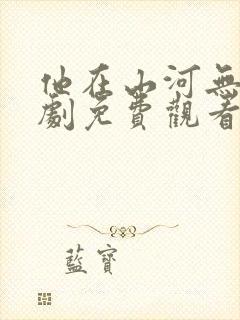 他在山河無
劇免費觀看
藍寶